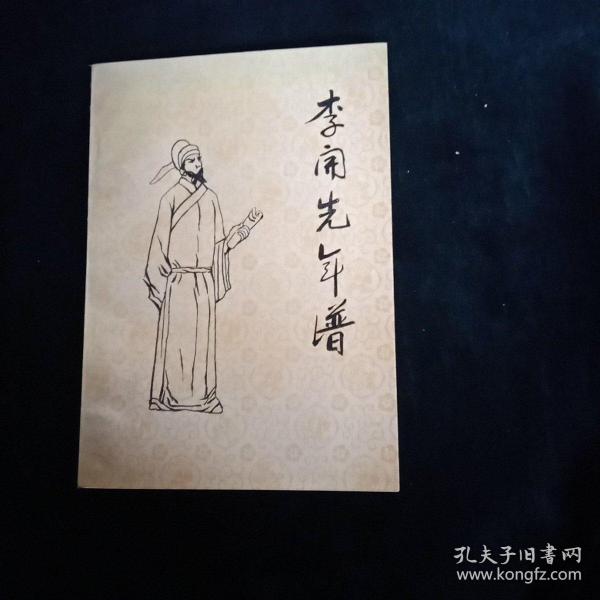 李开先年谱
孔夫子旧書网
www.kongfz.com